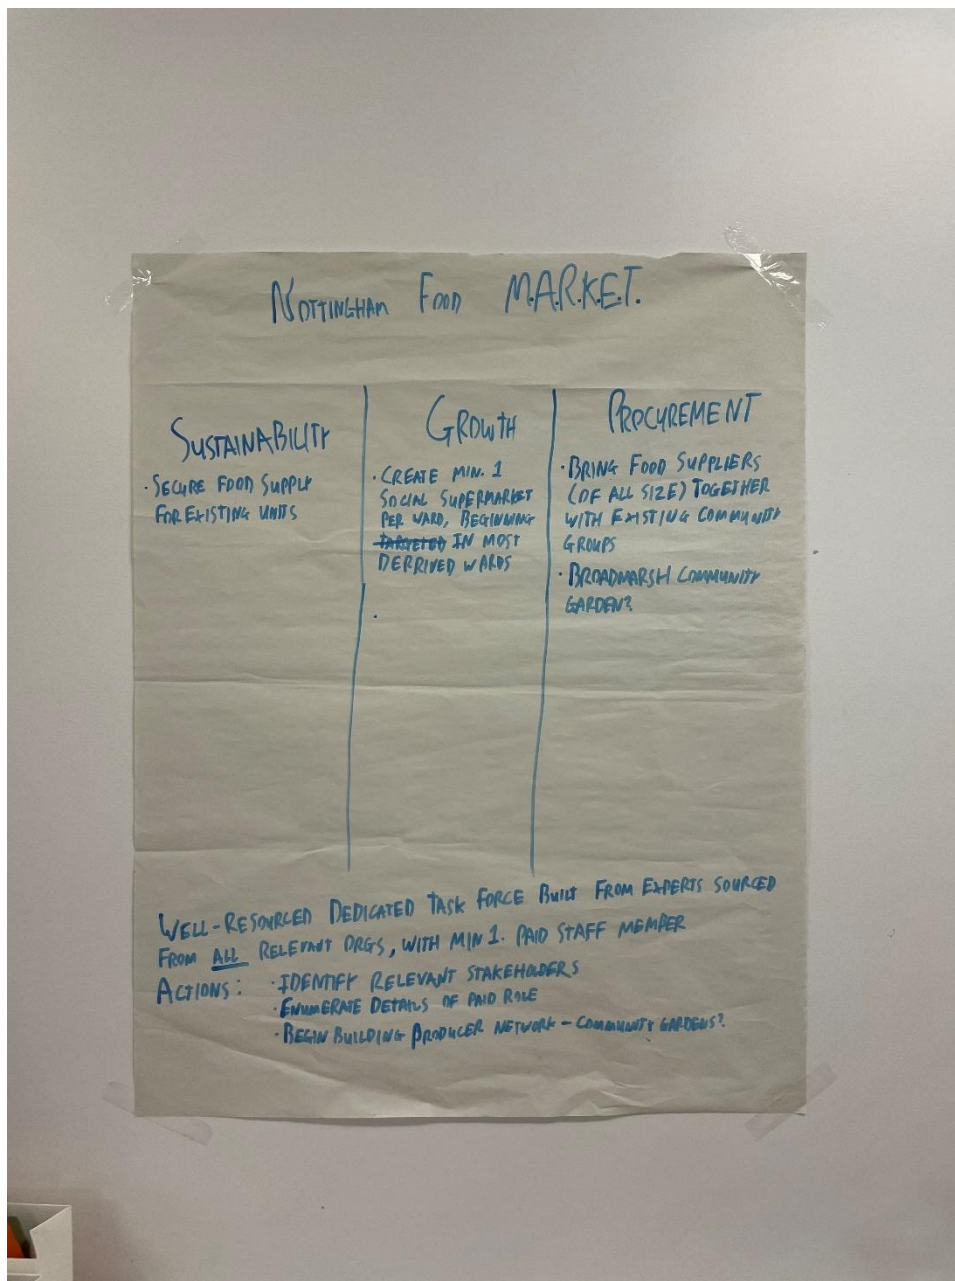 NOTTINGHAM FOOD M.A.R.K.E.T.
SUSTAINABILITY
· SECURE FOOD SUPPLY
FOR EXISTING UNITS
GROWTH
· CREATE MIN. 1
SOCIAL SUPERMARKET
PER WARD, BEGINNING
TARGETED IN MOST
DERRIVED WARDS
·
PROCUREMENT
· BRING FOOD SUPPLIERS
(OF ALL SIZE) TOGETHER
WITH EXISTING COMMUNITY
GROUPS
· BROADMARSH COMMUNITY
GARDEN?
WELL-RESOURCED DEDICATED TASK FORCE BUILT FROM EXPERTS SOURCED
FROM ALL RELEVANT ORGS, WITH MIN 1. PAID STAFF MEMBER
ACTIONS: · IDENTIFY RELEVANT STAKEHOLDERS
· ENUMERATE DETAILS OF PAID ROLE
· BEGIN BUILDING PRODUCER NETWORK – COMMUNITY GARDENS?